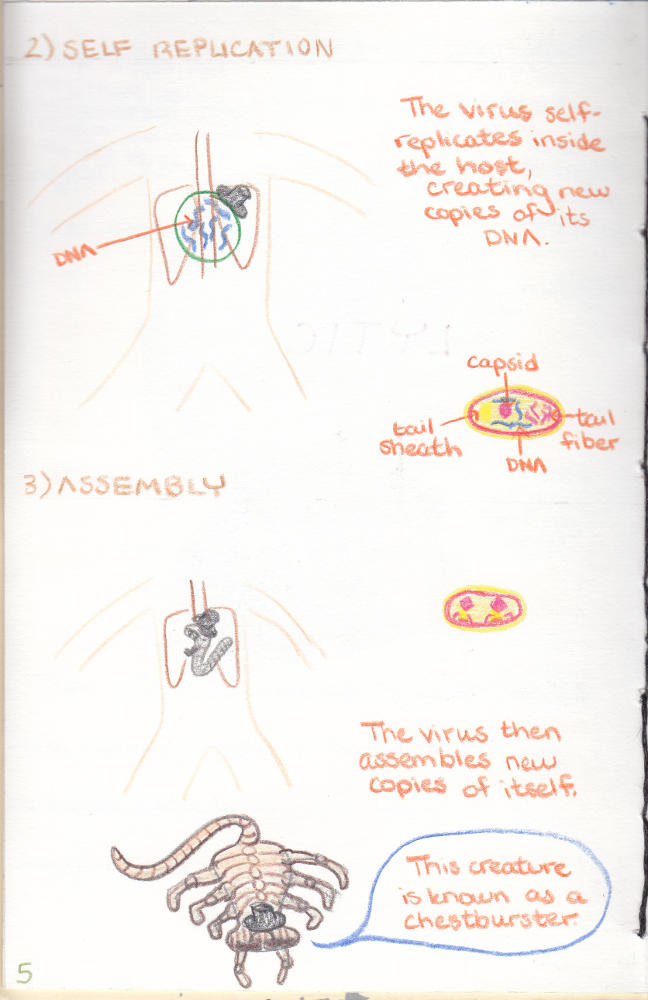 2) SELF REPLICATION
The virus self-
replicates inside
the host,
creating new
copies of its
DNA.
DNA
LYTIC
capsid
tail
sheath
tail
fiber
DNA
3) ASSEMBLY
The virus then
assembles new
copies of itself.
This creature
is known as a
chestburster.
5